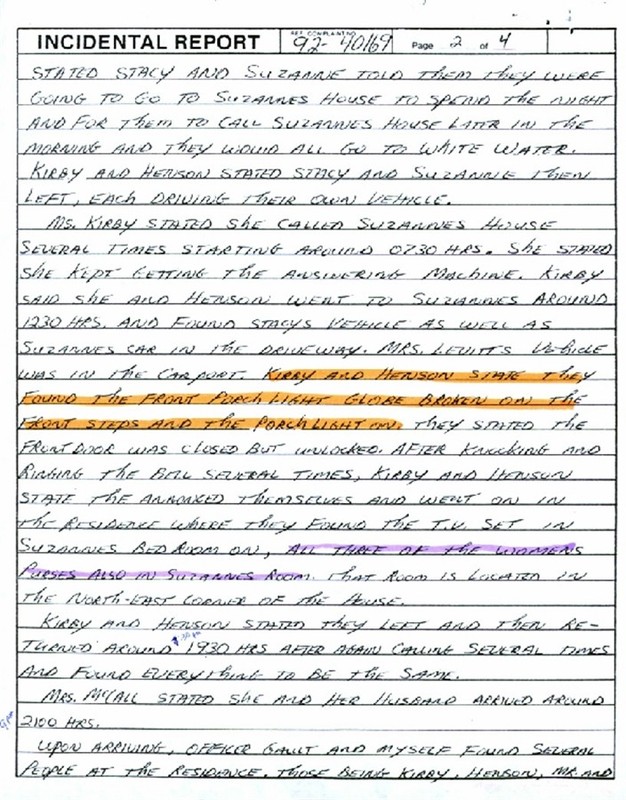 INCIDENTAL REPORT REF. COMPLAINT NO. 92-40169 Page 2 of 4
STATED STACY AND SUZANNE TOLD THEM THEY WERE
GOING TO GO TO SUZANNES HOUSE TO SPEND THE NIGHT
AND FOR THEM TO CALL SUZANNES HOUSE LATER IN THE
MORNING AND THEY WOULD ALL GO TO WHITE WATER.
KIRBY AND HENSON STATED STACY AND SUZANNE THEN
LEFT, EACH DRIVING THEIR OWN VEHICLE.
MS. KIRBY STATED SHE CALLED SUZANNES HOUSE
SEVERAL TIMES STARTING AROUND 0730 HRS. SHE STATED
SHE KEPT GETTING THE ANSWERING MACHINE. KIRBY
SAID SHE AND HENSON WENT TO SUZANNES AROUND
1230 HRS. AND FOUND STACYS VEHICLE AS WELL AS
SUZANNES CAR IN THE DRIVEWAY. MRS. LEVITTS VEHICLE
WAS IN THE CARPORT. KIRBY AND HENSON STATE THEY
FOUND THE FRONT PORCH LIGHT GLOBE BROKEN ON THE
FRONT STEPS AND THE PORCH LIGHT ON. THEY STATED THE
FRONT DOOR WAS CLOSED BUT UNLOCKED. AFTER KNOCKING AND
RINGING THE BELL SEVERAL TIMES, KIRBY AND HENSON
STATE THE ANNONCED THEMSELVES AND WENT ON IN
THE RESIDENCE WHERE THEY FOUND THE T.V. SET IN
SUZANNES BEDROOM ON, ALL THREE OF THE WOMENS
PURSES ALSO IN SUZANNES ROOM. THAT ROOM IS LOCATED IN
THE NORTH-EAST CORNER OF THE HOUSE.
KIRBY AND HENSON STATED THEY LEFT AND THEN RE-
TURNED AROUND 1930 HRS AFTER AGAIN CALLING SEVERAL TIMES
AND FOUND EVERYTHING TO BE THE SAME.
MRS. McCALL STATED SHE AND HER HUSBAND ARRIVED AROUND
9pm
2100 HRS.
UPON ARRIVING, OFFICER GAULT AND MYSELF FOUND SEVERAL
PEOPLE AT THE RESIDENCE. THOSE BEING KIRBY, HENSON, MR. AND